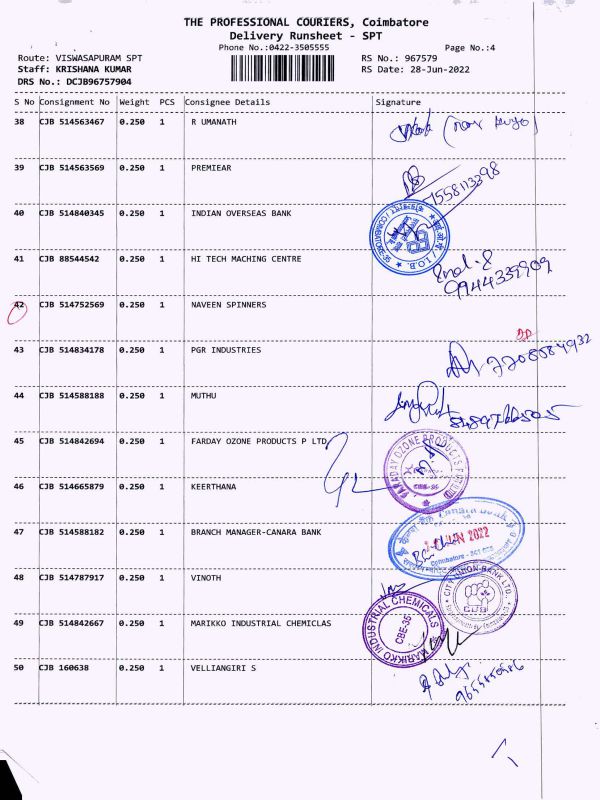 THE PROFESSIONAL COURIERS, Coimbatore
Delivery Runsheet - SPT
Phone No.:0422-3505555 Page No.:4
Route: VISWASAPURAM SPT RS No.: 967579
Staff: KRISHANA KUMAR RS Date: 28-Jun-2022
DRS No.: DCJB96757904
S No Consignment No Weight PCS Consignee Details Signature
38 CJB 514563467 0.250 1 R UMANATH
39 CJB 514563569 0.250 1 PREMIEAR
7558113398
40 CJB 514840345 0.250 1 INDIAN OVERSEAS BANK
I.O.B.
41 CJB 88544542 0.250 1 HI TECH MACHING CENTRE
9944339909
42 CJB 514752569 0.250 1 NAVEEN SPINNERS
43 CJB 514834178 0.250 1 PGR INDUSTRIES
44 CJB 514588188 0.250 1 MUTHU
45 CJB 514842694 0.250 1 FARDAY OZONE PRODUCTS P LTD
FARADAY OZONE PRODUCTS PVT LTD
46 CJB 514665879 0.250 1 KEERTHANA
47 CJB 514588182 0.250 1 BRANCH MANAGER-CANARA BANK
Canara Bank
JUN 2022
48 CJB 514787917 0.250 1 VINOTH
CITY UNION BANK LTD.
CUB
49 CJB 514842667 0.250 1 MARIKKO INDUSTRIAL CHEMICLAS
MARIKKO INDUSTRIAL CHEMICALS
CBE-35
50 CJB 160638 0.250 1 VELLIANGIRI S